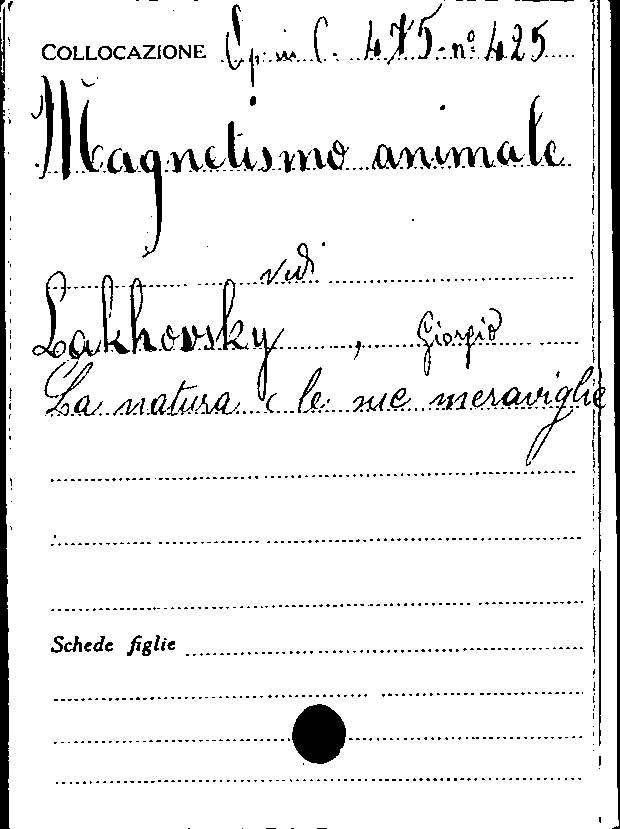 COLLOCAZIONE Ep. in C. 475. nº 425
Magnetismo animale
vedi
Lakhovsky, Giorgio
La natura e le sue meraviglie
Schede figlie